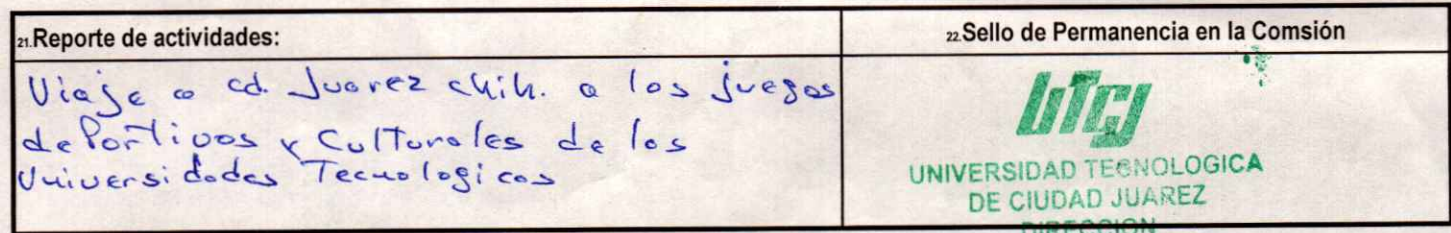 21.Reporte de actividades:
22.Sello de Permanencia en la Comsión
Viaje a cd. Juarez chih. a los juegos
dePortivos y Culturales de las
Universidades Tecnologicas
UTCJ
UNIVERSIDAD TECNOLOGICA
DE CIUDAD JUAREZ
DIRECCION